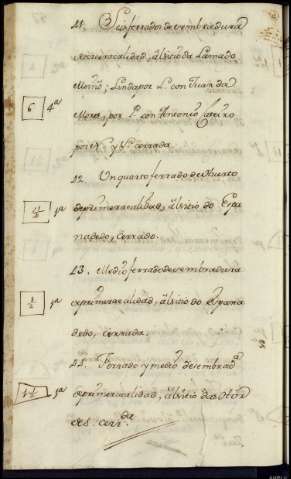 21. Seis ferrados de sembradura
de quarta calidad, al sitio da Lama do
Monte; Linda por L. con Juan da
6 4ª Mora, por P. con Antonio
por N. y S. cerrada
22. Un quarto ferrado de Huerto
1ª de primera calidad, al sitio do Espi
nadedo, Cerrado.
23. Medio ferrado de sembradura
1/2 1ª de primera calidad, al sitio do
dedo, cerrada.
24. Ferrado y medio de sembradª
1½ 1ª de primera calidad, al sitio das
des cerrda